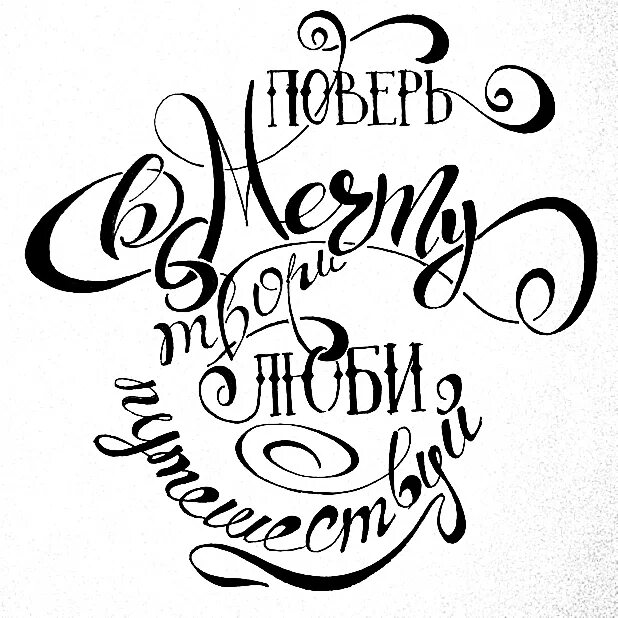 ПОВЕРЬ
в Мечту
твори
ЛЮБИ
путешествуй